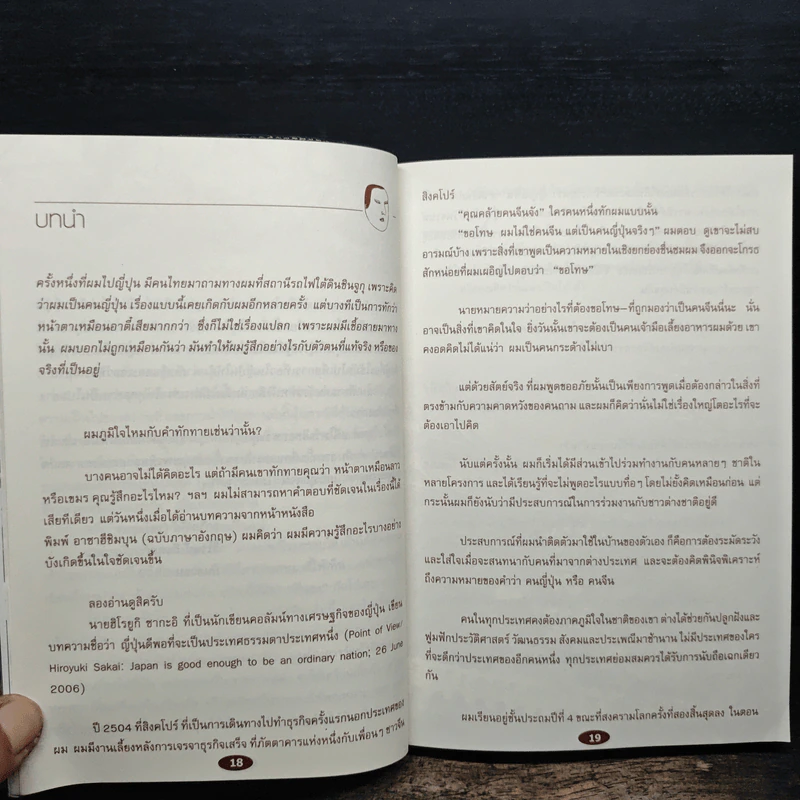 บทนำ
ครั้งหนึ่งที่ผมไปญี่ปุ่น มีคนไทยมาถามทางผมที่สถานีรถไฟใต้ดินชินจูกุ เพราะคิด
ว่าผมเป็นคนญี่ปุ่น เรื่องแบบนี้เคยเกิดกับผมอีกหลายครั้ง แต่บางทีเป็นการทักว่า
หน้าตาเหมือนอาตี๋เสียมากกว่า ซึ่งก็ไม่ใช่เรื่องแปลก เพราะผมมีเชื้อสายมาทาง
นั้น ผมบอกไม่ถูกเหมือนกันว่า มันทำให้ผมรู้สึกอย่างไรกับตัวตนที่แท้จริง หรือของ
จริงที่เป็นอยู่
ผมภูมิใจไหมกับคำทักทายเช่นว่านั้น?
บางคนอาจไม่ได้คิดอะไร แต่ถ้ามีคนเขาทักทายคุณว่า หน้าตาเหมือนลาว
หรือเขมร คุณรู้สึกอะไรไหม? ฯลฯ ผมไม่สามารถหาคำตอบที่ชัดเจนในเรื่องนี้ได้
เสียทีเดียว แต่วันหนึ่งเมื่อได้อ่านบทความจากหน้าหนังสือ
พิมพ์ อาซาฮีชิมบุน (ฉบับภาษาอังกฤษ) ผมคิดว่า ผมมีความรู้สึกอะไรบางอย่าง
บังเกิดขึ้นในใจชัดเจนขึ้น
ลองอ่านดูสิครับ
นายฮิโรยูกิ ซากะอิ ที่เป็นนักเขียนคอลัมน์ทางเศรษฐกิจของญี่ปุ่น เขียน
บทความชื่อว่า ญี่ปุ่นดีพอที่จะเป็นประเทศธรรมดาประเทศหนึ่ง (Point of View/
Hiroyuki Sakai: Japan is good enough to be an ordinary nation; 26 June
2006)
ปี 2504 ที่สิงคโปร์ ที่เป็นการเดินทางไปทำธุรกิจครั้งแรกนอกประเทศของ
ผม ผมมีงานเลี้ยงหลังการเจรจาธุรกิจเสร็จ ที่ภัตตาคารแห่งหนึ่งกับเพื่อนๆ ชาวจีน
18
สิงคโปร์
"คุณคล้ายคนจีนจัง" ใครคนหนึ่งทักผมแบบนั้น
"ขอโทษ ผมไม่ใช่คนจีน แต่เป็นคนญี่ปุ่นจริงๆ" ผมตอบ ดูเขาจะไม่สบ
อารมณ์บ้าง เพราะสิ่งที่เขาพูดเป็นความหมายในเชิงยกย่องชื่นชมผม จึงออกจะโกรธ
สักหน่อยที่ผมเผอิญไปตอบว่า "ขอโทษ"
นายหมายความว่าอย่างไรที่ต้องขอโทษ—ที่ถูกมองว่าเป็นคนจีนนี่นะ นั่น
อาจเป็นสิ่งที่เขาคิดในใจ ยิ่งวันนั้นเขาจะต้องเป็นคนเจ้ามือเลี้ยงอาหารผมด้วย เขา
คงอดคิดไม่ได้แน่ว่า ผมเป็นคนกระด้างไม่เบา
แต่ด้วยสัตย์จริง ที่ผมพูดขออภัยนั้นเป็นเพียงการพูดเมื่อต้องกล่าวในสิ่งที่
ตรงข้ามกับความคาดหวังของคนถาม และผมก็คิดว่านั่นไม่ใช่เรื่องใหญ่โตอะไรที่จะ
ต้องเอาไปคิด
นับแต่ครั้งนั้น ผมก็เริ่มได้มีส่วนเข้าไปร่วมทำงานกับคนหลายๆ ชาติใน
หลายโครงการ และได้เรียนรู้ที่จะไม่พูดอะไรแบบทื่อๆ โดยไม่ยั้งคิดเหมือนก่อน แต่
กระนั้นผมก็ยังนับว่ามีประสบการณ์ในการร่วมงานกับชาวต่างชาติอยู่ดี
ประสบการณ์ที่ผมนำติดตัวมาใช้ในบ้านของตัวเอง ก็คือการต้องระมัดระวัง
และใส่ใจเมื่อจะสนทนากับคนที่มาจากต่างประเทศ และจะต้องคิดพินิจพิเคราะห์
ถึงความหมายของคำว่า คนญี่ปุ่น หรือ คนจีน
คนในทุกประเทศคงต้องภาคภูมิใจในชาติของเขา ต่างได้ช่วยกันปลูกฝังและ
ฟูมฟักประวัติศาสตร์ วัฒนธรรม สังคมและประเพณีมาช้านาน ไม่มีประเทศของใคร
ที่จะดีกว่าประเทศของอีกคนหนึ่ง ทุกประเทศย่อมสมควรได้รับการนับถือเฉกเดียว
กัน
ผมเรียนอยู่ชั้นประถมปีที่ 4 ขณะที่สงครามโลกครั้งที่สองสิ้นสุดลง ในตอน
19